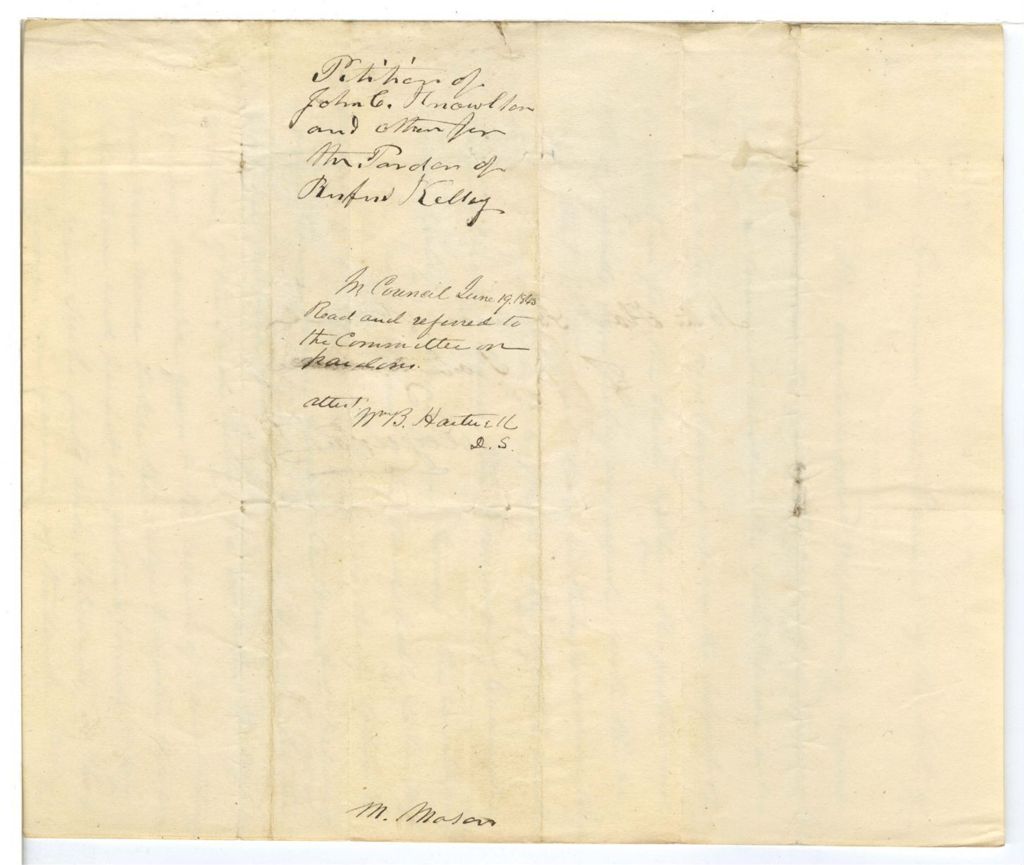 Petition of
John C. Knowlton
and others for
the Pardon of
Rufus Kelley
In Council June 19, 1843
Read and referred to
the Committee on
pardons.
attest
Wm B. Hartwell
D. S.
M. Mason